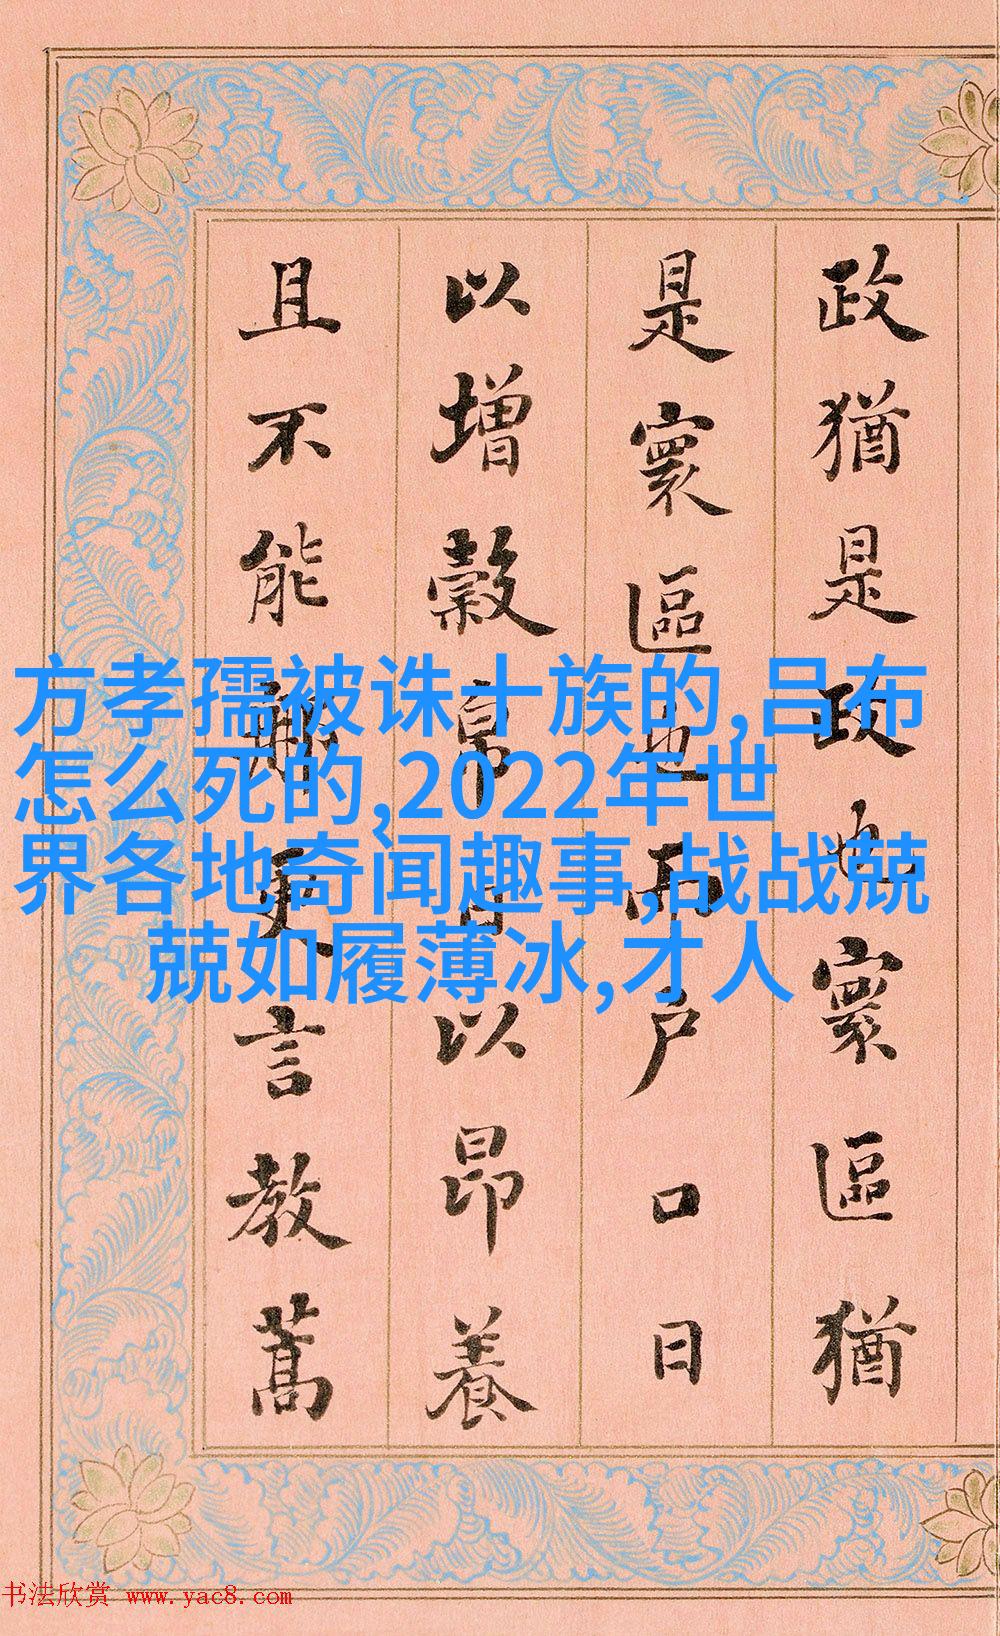 政猶是政也寰區猶
是寰區也而戶口日
以增穀帛日以昂養
且不能那更言教蒿
方孝孺被诛十族的,吕布
怎么死的,2022年世
界各地奇闻趣事,战战兢
兢如履薄冰,才人
书法欣赏 www.yac8.com